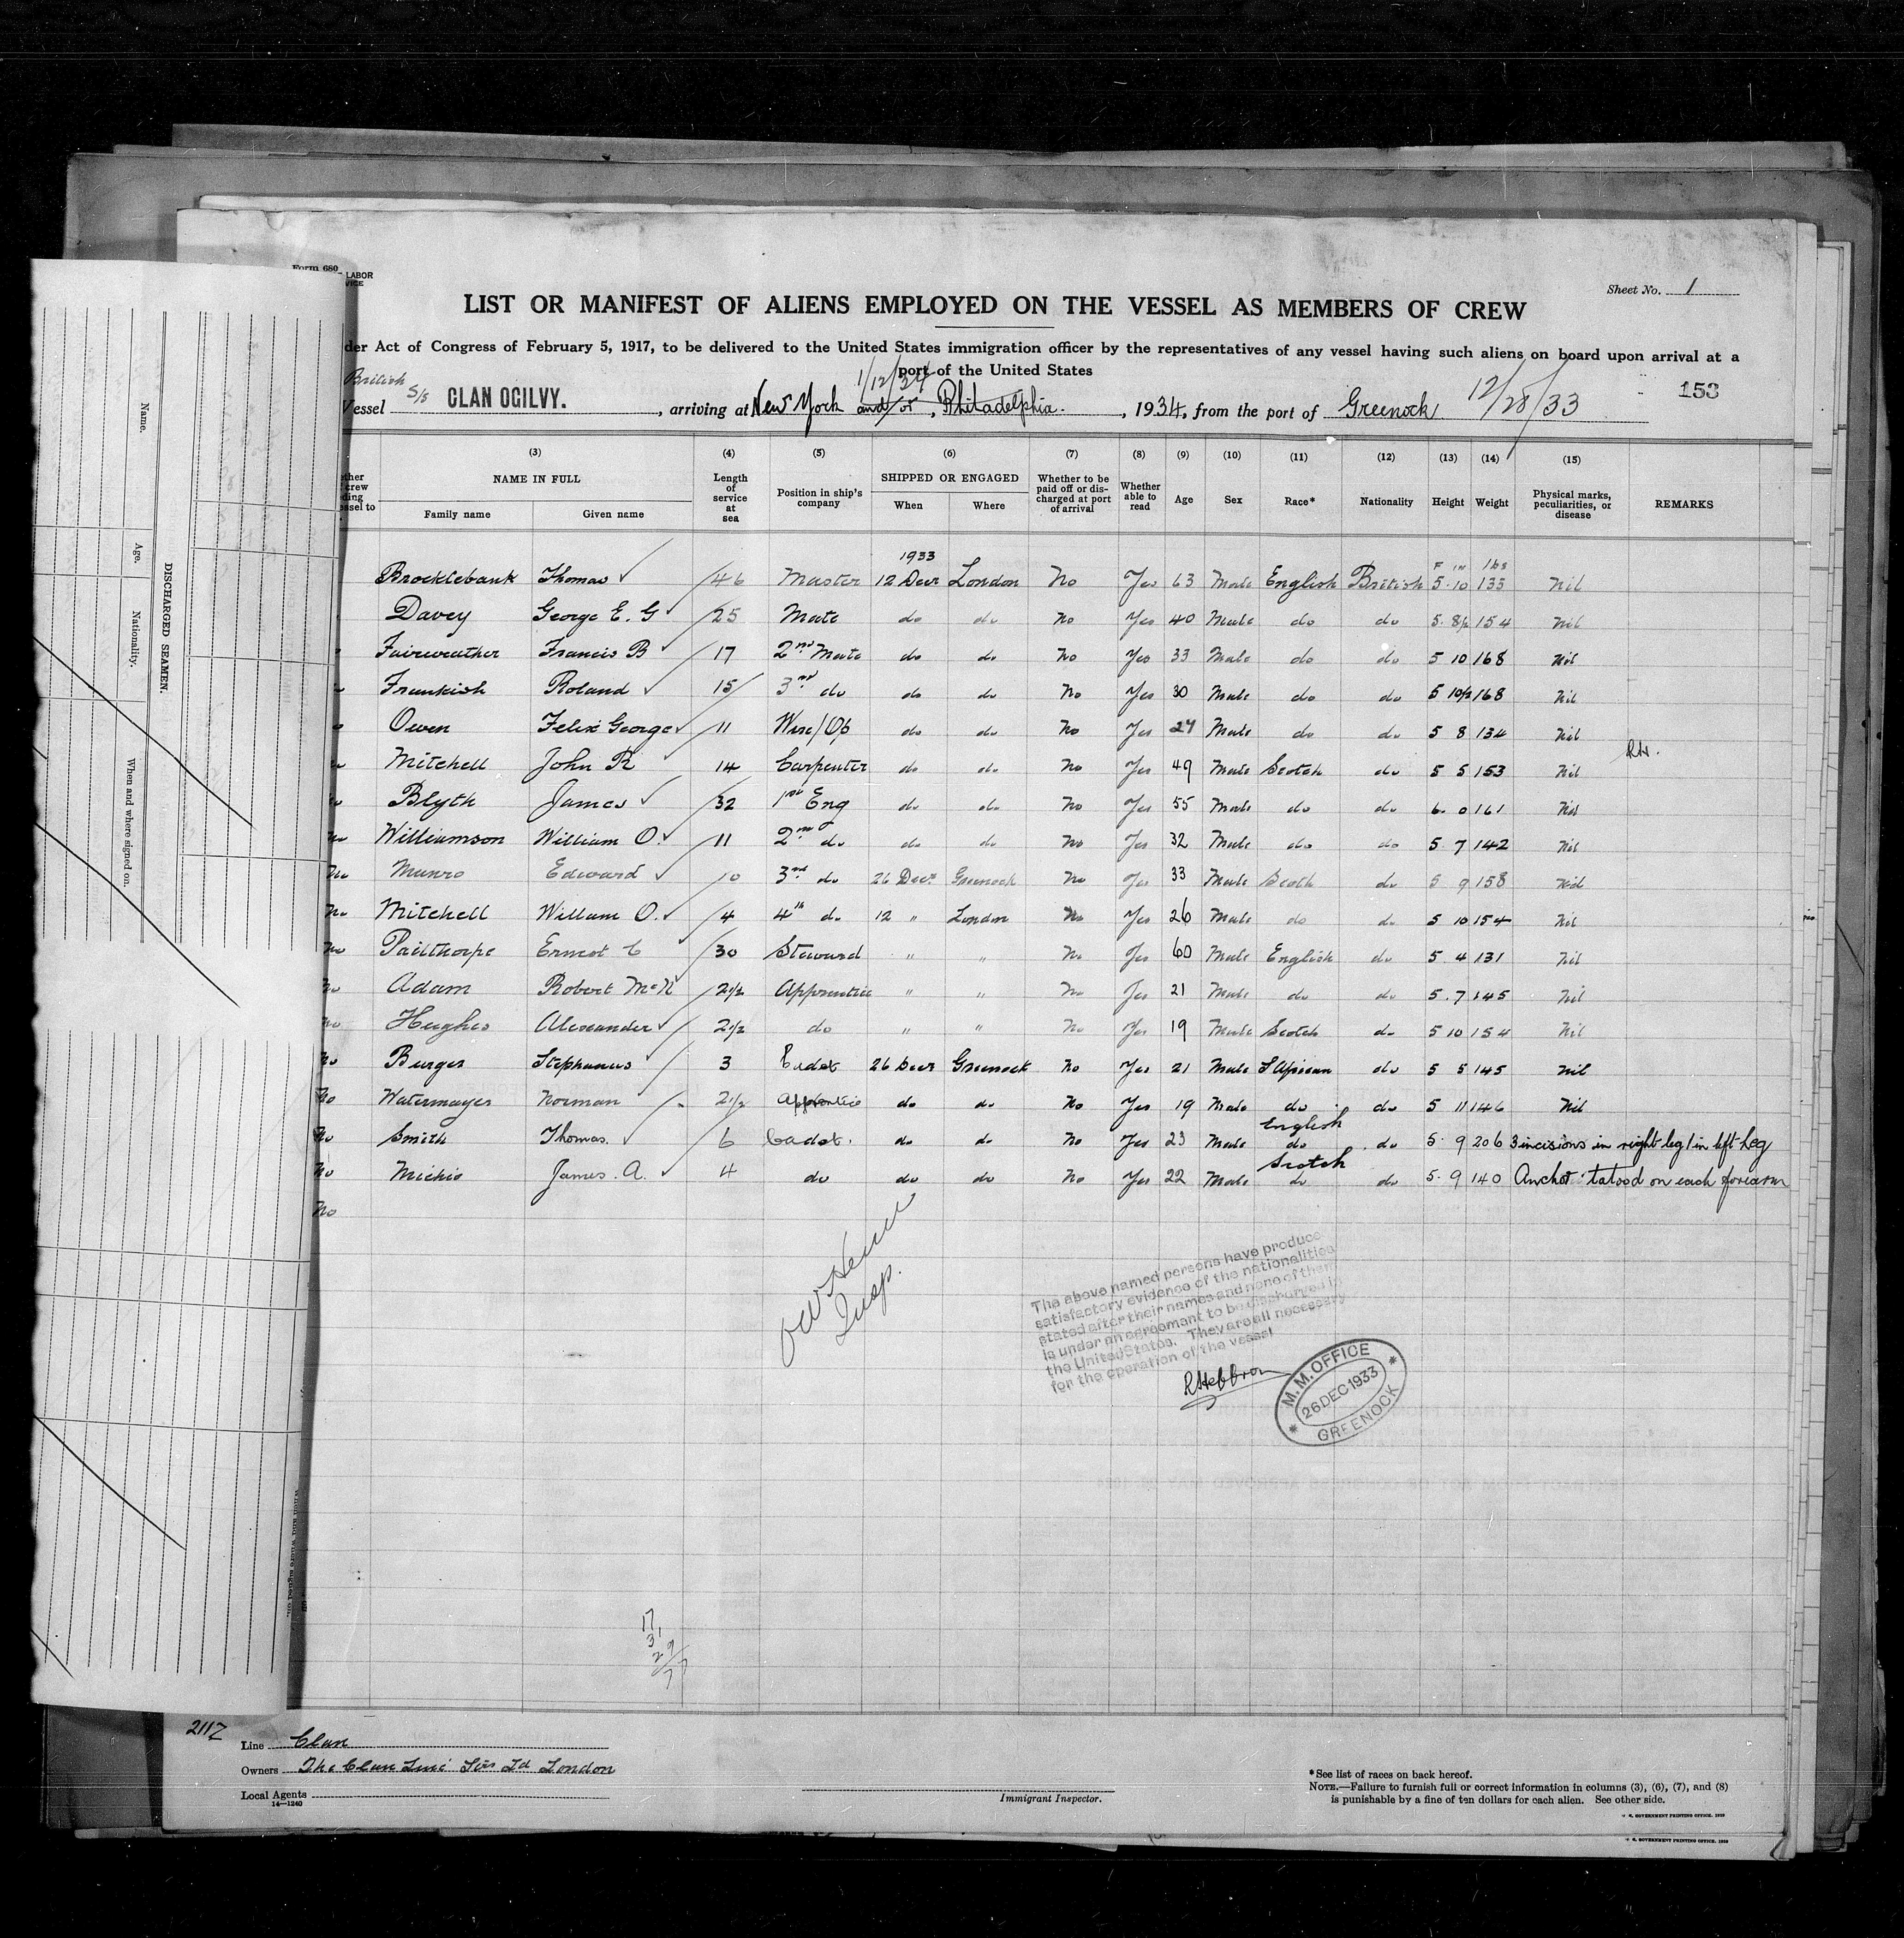 Form 680
LABOR
VICE
Sheet No. 1
LIST OR MANIFEST OF ALIENS EMPLOYED ON THE VESSEL AS MEMBERS OF CREW
der Act of Congress of February 5, 1917, to be delivered to the United States immigration officer by the representatives of any vessel having such aliens on board upon arrival at a
port of the United States
1/12/34
British
Vessel S/s CLAN OGILVY. , arriving at New York and/or , Philadelphia. , 1934, from the port of Greenock 12/28/33
153
(3) (4) (5) (6) (7) (8) (9) (10) (11) (12) (13) (14) (15)
NAME IN FULL Family name Given name Length of service at sea Position in ship's company SHIPPED OR ENGAGED When Where Whether to be paid off or discharged at port of arrival Whether able to read Age Sex Race* Nationality Height Weight Physical marks, peculiarities, or disease REMARKS
1933 F in lbs
Brocklebank Thomas 46 Master 12 Decr London No Yes 63 Male English British 5.10 133 Nil
Davey George E. G 25 Mate do do No Yes 40 Male do do 5. 8½ 154 Nil
Fairweather Francis B 17 2nd Mate do do No Yes 33 Male do do 5 10 168 Nil
Frankish Roland 15 3rd do do do No Yes 30 Male do do 5 10½ 168 Nil
Owen Felix George 11 Wire/Op do do No Yes 27 Male do do 5 8 134 Nil
Mitchell John R 14 Carpenter do do No Yes 49 Male Scotch do 5 5 153 Nil RH.
Blyth James 32 1st Eng do do No Yes 55 Male do do 6. 0 161 Nil
No Williamson William O. 11 2nd do do do No Yes 32 Male do do 5. 7 142 Nil
No Munro Edward 10 3rd do 26 Decr Greenock No Yes 33 Male Scoth do 5 9 158 Nil
No Mitchell William O. 4 4th do 12 " London No Yes 26 Male do do 5 10 154 Nil
No Pailthorpe Ernest C 30 Steward " " No Yes 60 Male English do 5 4 131 Nil
No Adam Robert McN 2½ Apprentice " " No Yes 21 Male do do 5. 7 145 Nil
No Hughes Alexander 2½ do " " No Yes 19 Male Scotch do 5 10 154 Nil
No Burger Stephanus 3 Cadet 26 Decr Greenock No Yes 21 Male S African do 5 5 145 Nil
No Watermayer Norman 2½ Apprentice do do No Yes 19 Male do do 5 11 146 Nil
No Smith Thomas. 6 Cadet. do do No Yes 23 Male English do do 5. 9 206 3 incisions in right leg 1 in left Leg
No Michie James. A. 4 do do do No Yes 22 Male Scotch do do 5. 9 140 Anchor tatood on each forearm
No
Insp.
The above named persons have produce
satisfactory evidence of the nationalities
stated after their names and none of them
is under an agreement to be discharged in
the United States. They are all necessary
for the operation of the vessel
RHebbron
M. M. OFFICE
26 DEC 1933
GREENOCK
17
31
29
77
2117
Line Clan
Owners The Clan Line Strs Ld London
Local Agents
14—1240
Immigrant Inspector.
*See list of races on back hereof.
NOTE.—Failure to furnish full or correct information in columns (3), (6), (7), and (8)
is punishable by a fine of ten dollars for each alien. See other side.
DISCHARGED SEAMEN.
Name.
Age.
Nationality.
When and where signed on.